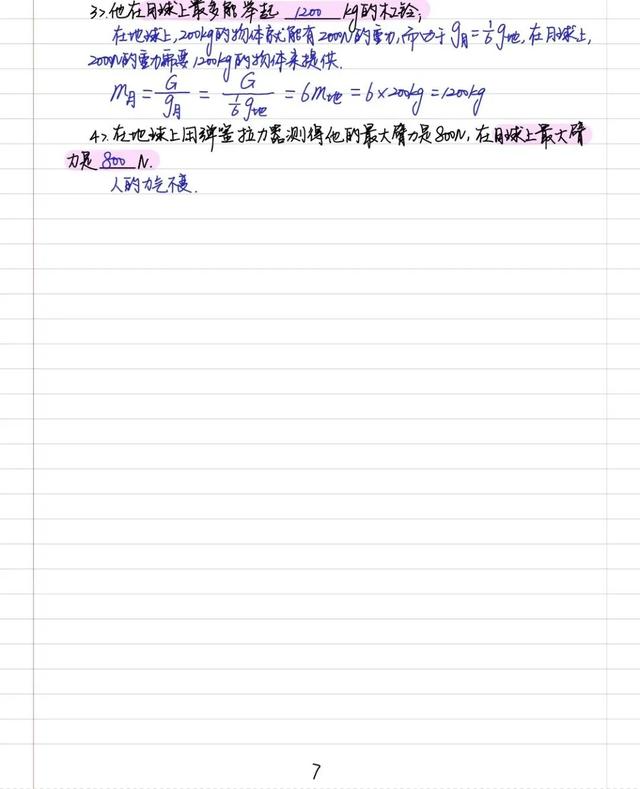 3>.他在月球上最多能举起 1200 kg的杠铃;
在地球上,200kg的物体就能有2000N的重力,而由于g月=1/6g地,在月球上,
2000N的重力需要1200kg的物体来提供.
m月=G/g月=G/(1/6g地)=6m地=6×200kg=1200kg
4>.在地球上用弹簧拉力器测得他的最大臂力是800N,在月球上最大臂
力是 800 N.
人的力气不变.
7